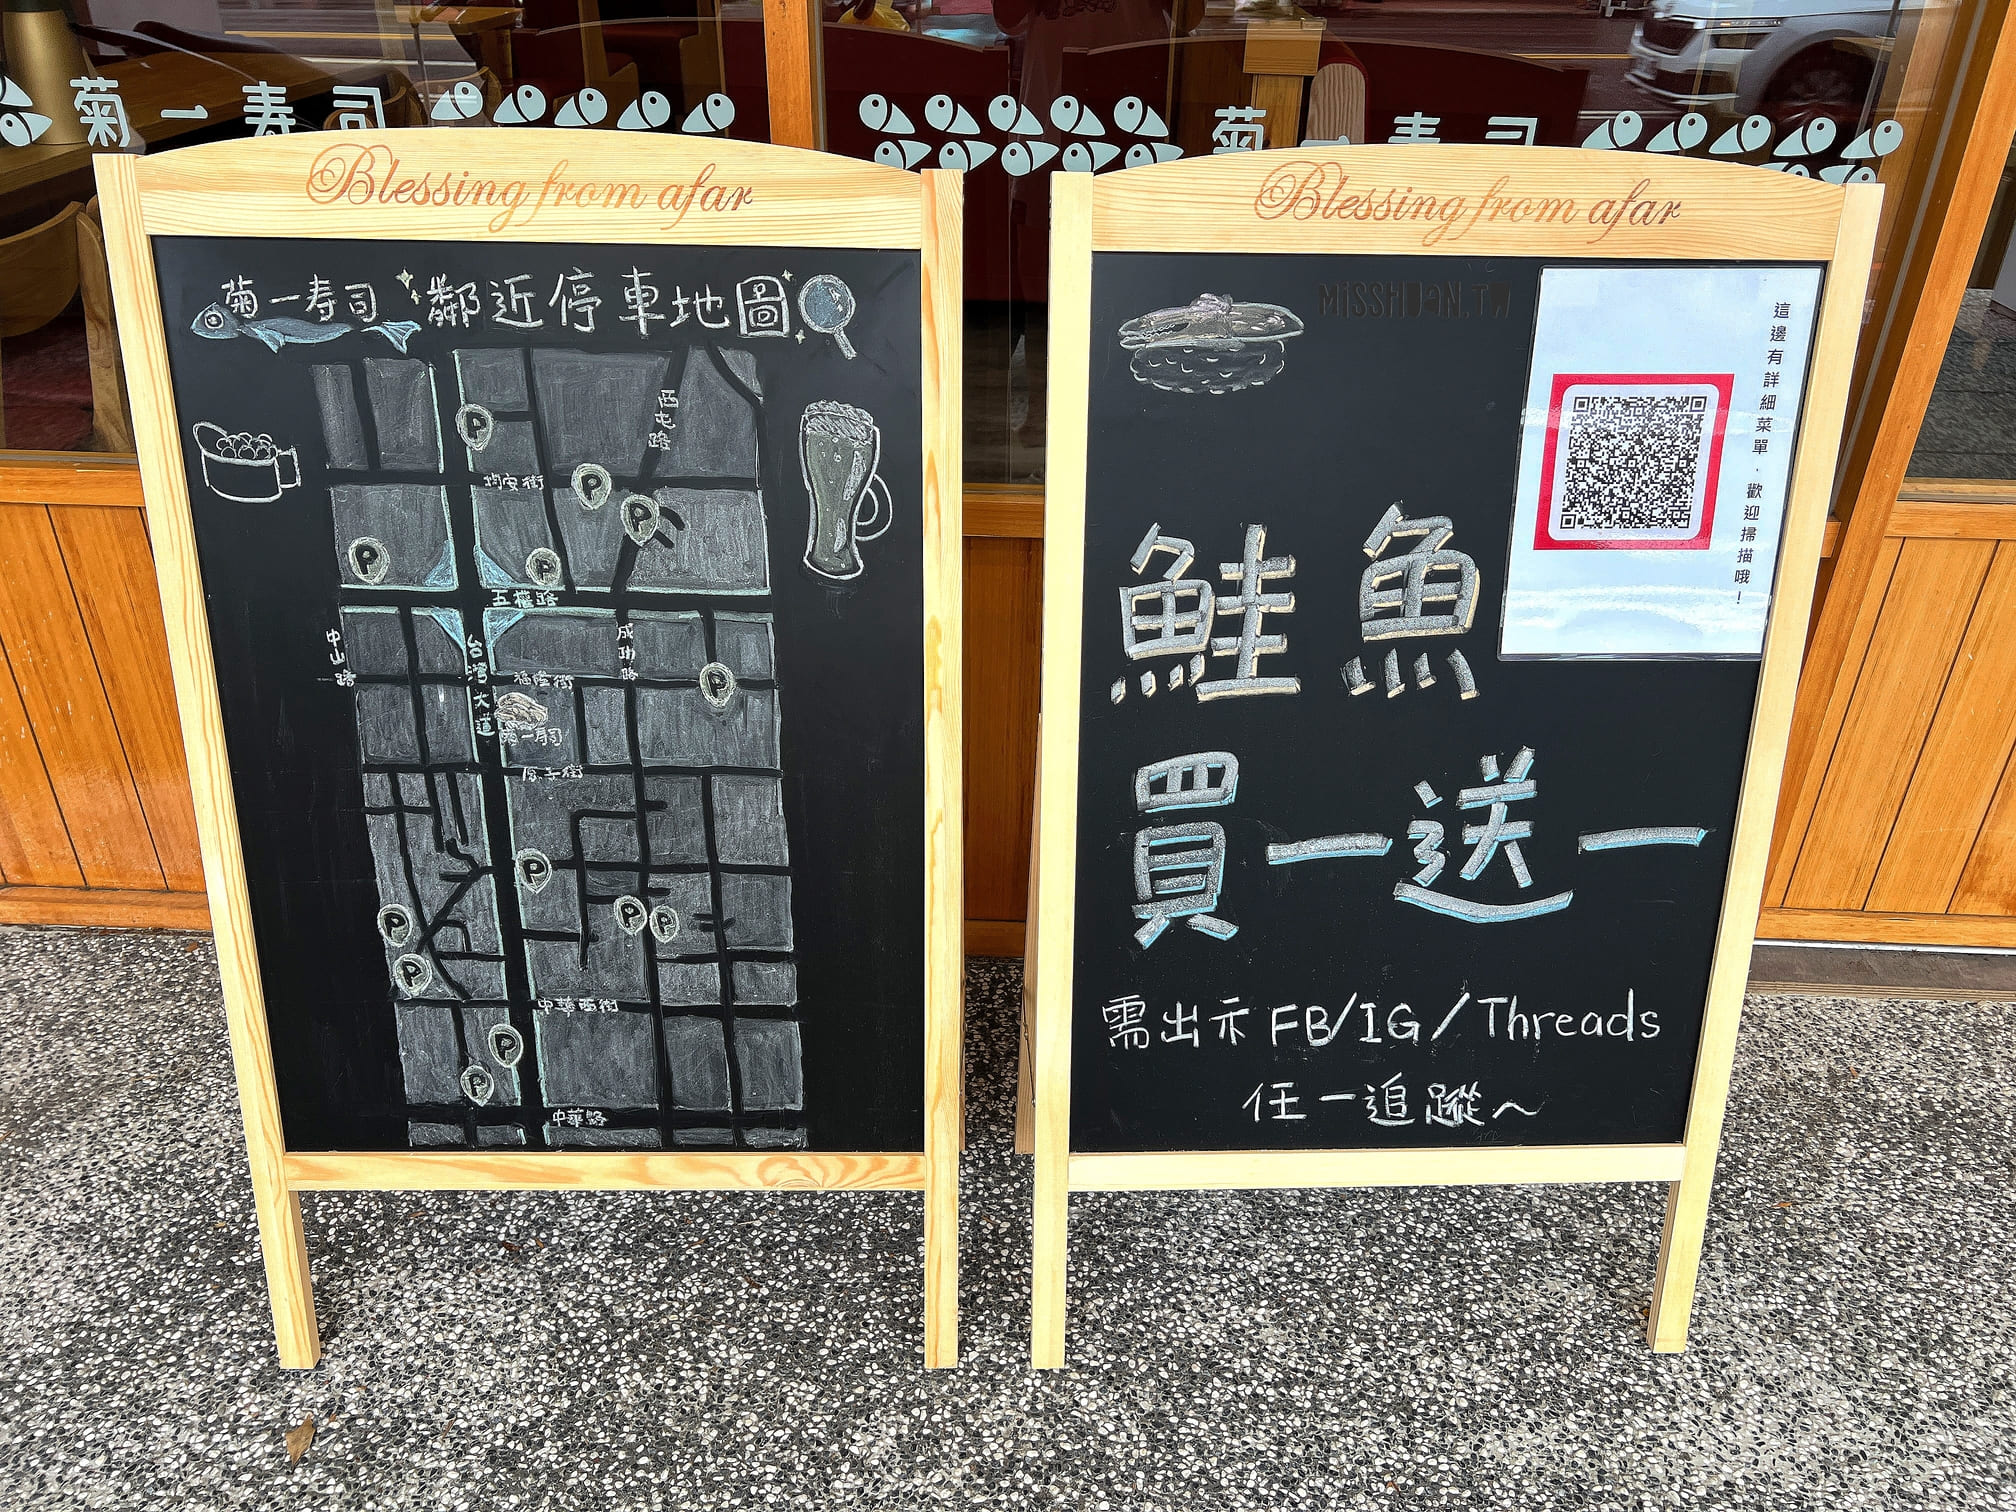 菊一寿司
菊一寿司
Blessing from afar
菊一寿司 鄰近停車地圖
西屯路
P
均安街
P
P
P
P
五權路
中山路
台灣大道
成功路
福隆街
P
菊一壽司
P
P
P
P
P
中華西街
P
P
中華路
Blessing from afar
MISSHUAN.TW
這邊有詳細菜單、歡迎掃描哦!
鮭魚
買一送一
需出示FB/IG/Threads
任一追蹤~